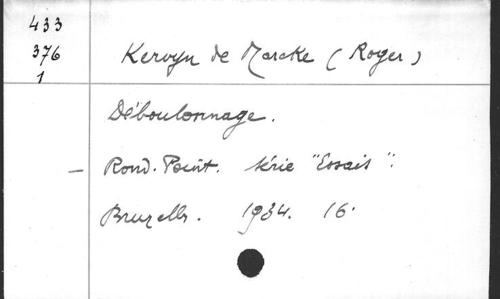 433
376
1
Kervyn de Marcke (Roger)
Déboulonnage.
— Rond-Point. Série "Essais".
Bruxelles. 1934. 16°